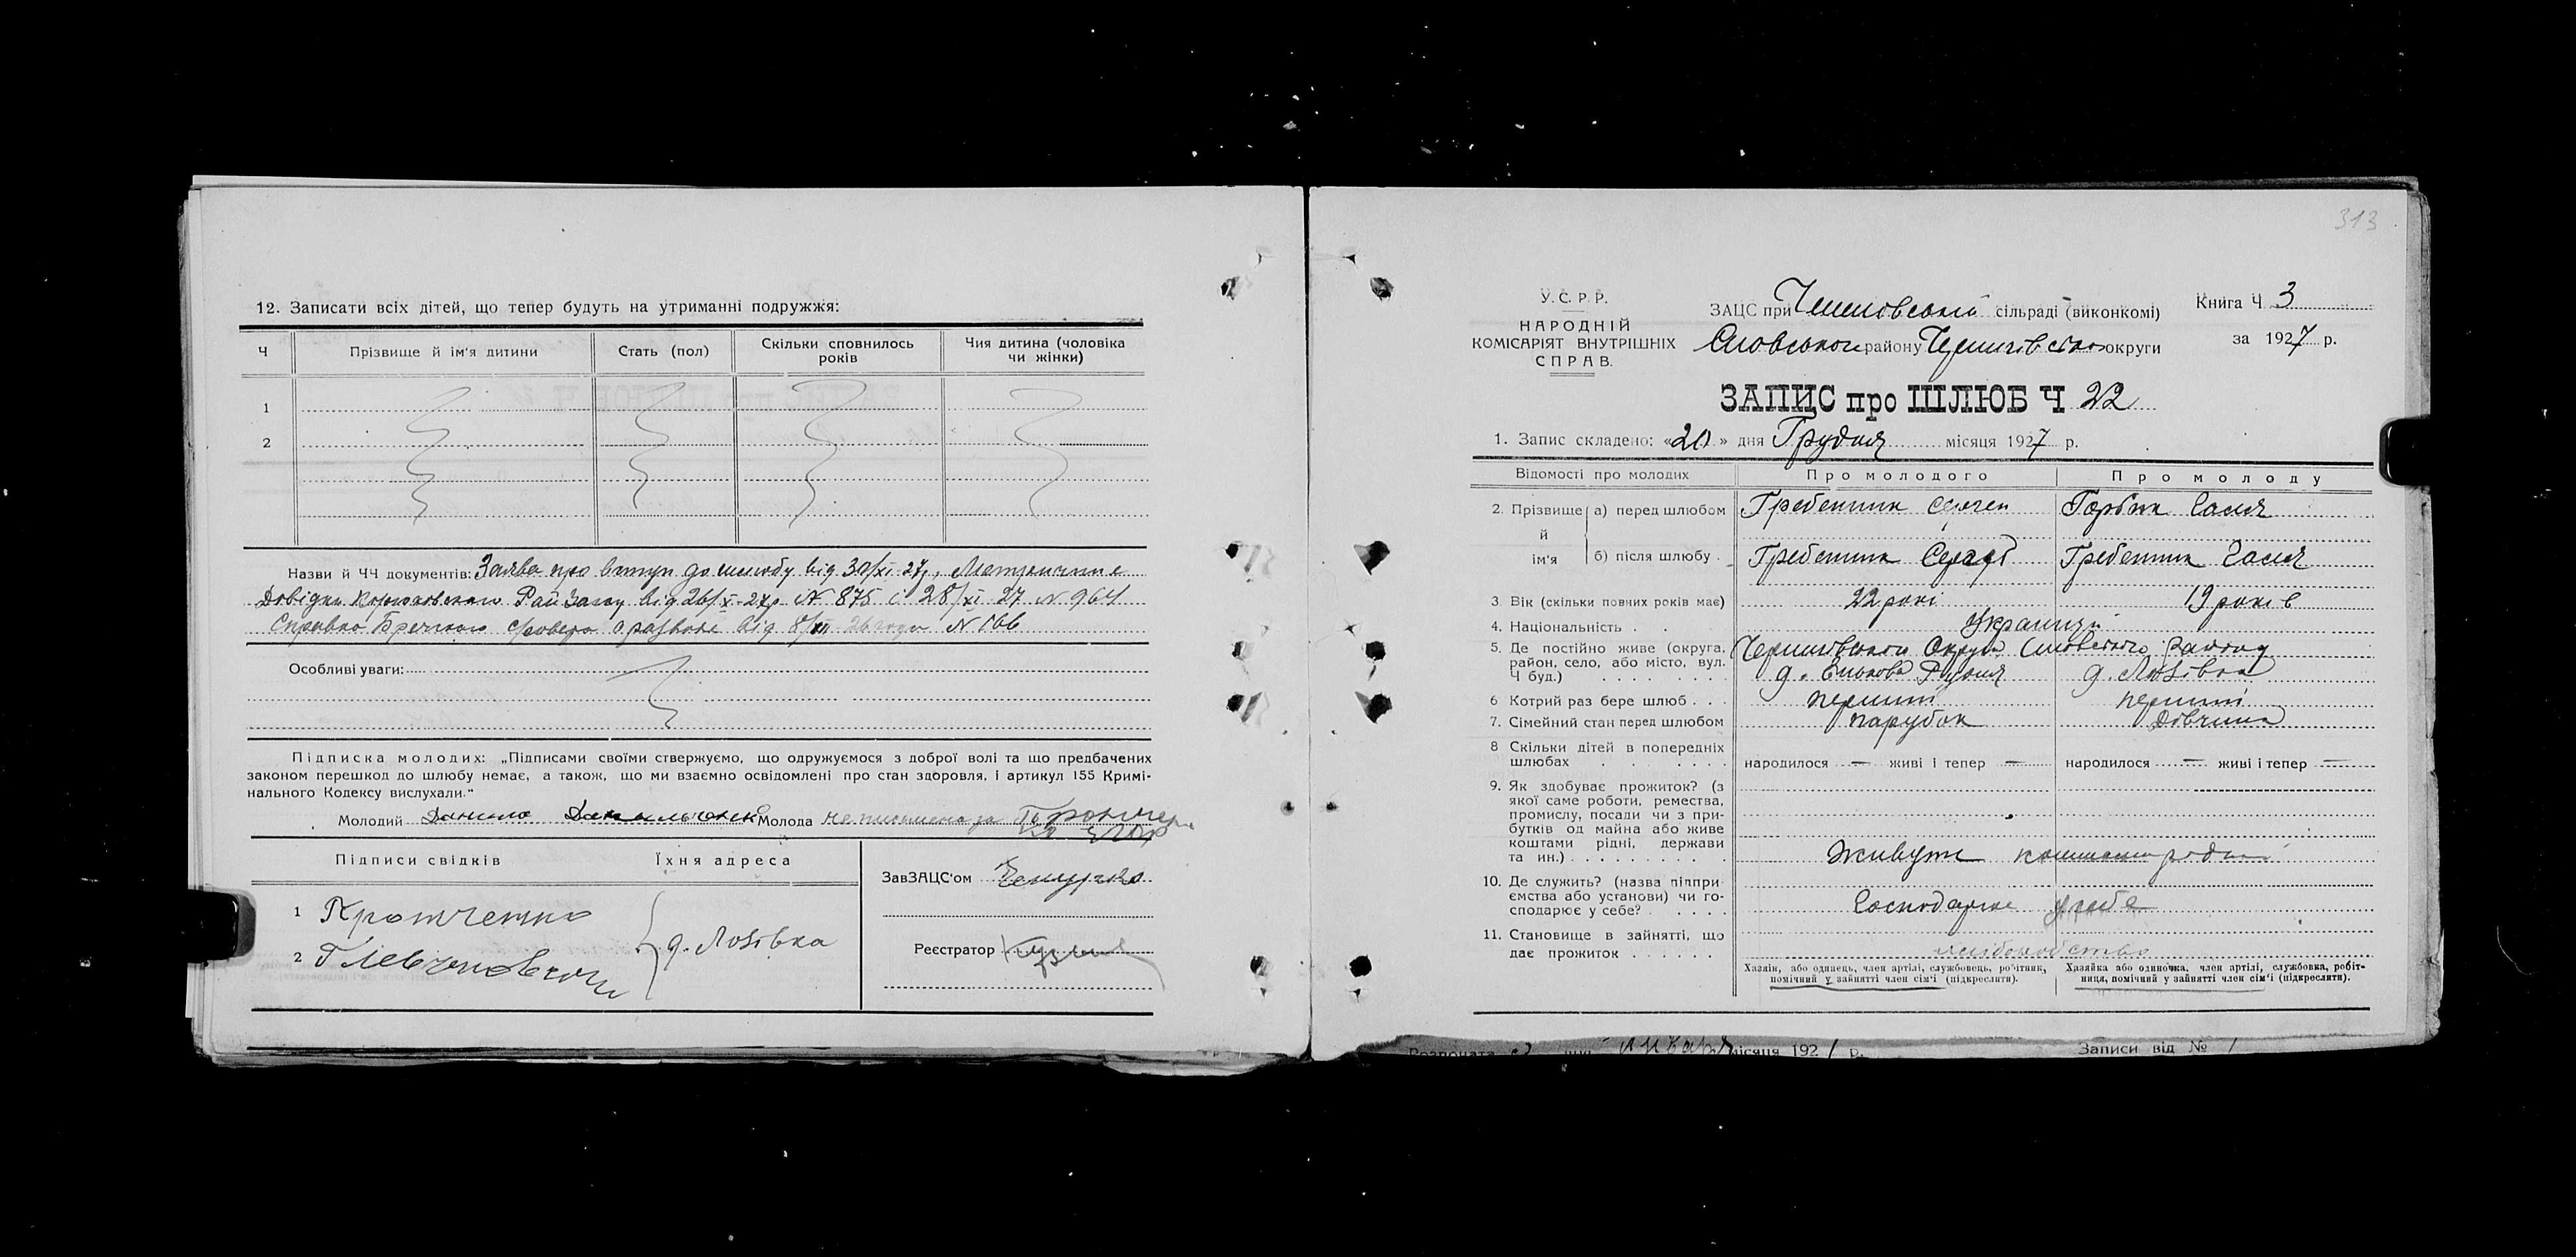 12. Записати всіх дітей, що тепер будуть на утриманні подружжя:
Ч Прізвище й ім'я дитини Стать (пол) Скільки сповнилось років Чия дитина (чоловіка чи жінки)
1
2
Назви й ЧЧ документів: Заява про вступ до шлюбу від 30/XI-27р, Метричні
Довідки Рай Загсу від 26/X-27р N 875 і 28/XI 27 N 964
Справка о разводі від 8/XII 26 года N 166
Особливі уваги:
Підписка молодих: „Підписами своїми стверджуємо, що одружуємося з доброї волі та що предбачених
законом перешкод до шлюбу немає, а також, що ми взаємно освідомлені про стан здоровля, і артикул 155 Кримі-
нального Кодексу вислухали."
Молодий Данило Данильченко Молода неписьмена за
Підписи свідків Їхня адреса
ЗавЗАЦС'ом
1 Кротченко
2 д. Лозівка
Реєстратор
313
У. С. Р. Р.
НАРОДНІЙ
КОМІСАРІЯТ ВНУТРІШНІХ
СПРАВ.
ЗАЦС при сільраді (виконкомі)
району Чернигівської округи
Книга Ч 3
за 1927 р.
ЗАПИС про ШЛЮБ Ч 22
1. Запис складено: «20» дня Грудня місяця 1927 р.
Відомості про молодих Про молодого Про молоду
2. Прізвище й ім'я а) перед шлюбом Гребенник Сергей Горбик Галя
б) після шлюбу Гребенник Сергей Гребенник Галя
3. Вік (скільки повних років має) 22 рокі 19 років
4. Національність Украинці
5. Де постійно живе (округа, район, село, або місто, вул. Ч буд.) Чернигівської Округи Району
д. Рудня д. Лозівка
6 Котрий раз бере шлюб перший перший
7. Сімейний стан перед шлюбом парубок Дівчина
8 Скільки дітей в попередніх шлюбах народилося — живі і тепер — народилося — живі і тепер —
9. Як здобуває прожиток? (з
якої саме роботи, ремества,
промислу, посади чи з при-
бутків од майна або живе
коштами рідні, держави
та ин.) Живуть коштами родині
10. Де служить? (назва підпри-
ємства або установи) чи го-
сподарює у себе? Господарює у себе
11. Становище в зайнятті, що
дає прожиток хліборобство
Хазяїн, або одинець, член артілі, службовець, робітник,
помічний у зайнятті член сім'ї (підкреслити).
Хазяйка або одиночка, член артілі, службовка, робіт-
ниця, помічний у зайнятті член сім'ї (підкреслити).
місяця 192 р. Записи від № 1